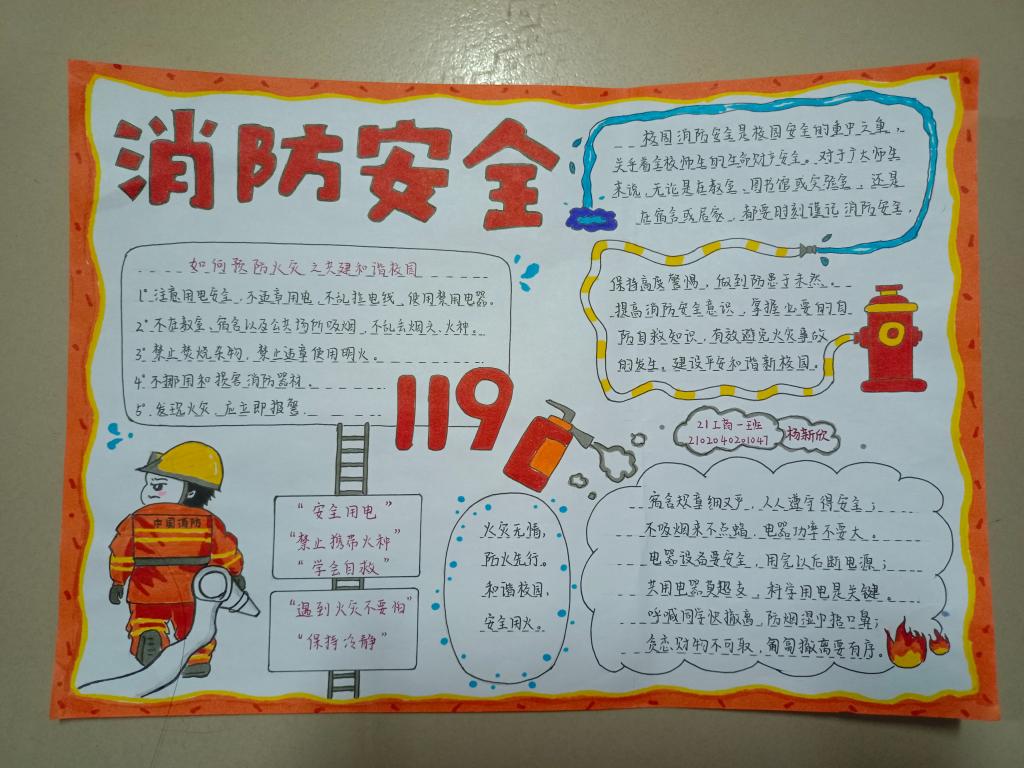 消防安全
校园消防安全是校园安全的重中之重，
关乎着全校师生的生命财产安全。对于广大师生
来说，无论是在教室、图书馆或实验室，还是
在宿舍或居家，都要时刻谨记消防安全，
保持高度警惕，做到防患于未然。
提高消防安全意识，掌握必要的自
防自救知识，有效避免火灾事故
的发生。建设平安和谐新校园。
如何预防火灾 之共建和谐校园
1°注意用电安全，不违章用电，不乱拉电线，使用禁用电器。
2°不在教室、宿舍以及公共场所吸烟，不乱丢烟头、火种。
3°禁止焚烧杂物，禁止违章使用明火。
4°不挪用和损害消防器材。
5°.发现火灾，应立即报警.
119
21工商一班
2102040201047
杨新欣
中国消防
“安全用电”
“禁止携带火种”
“学会自救”
“遇到火灾不要怕”
“保持冷静”
火灾无情，
防火先行。
和谐校园，
安全用火。
宿舍规章细又严，人人遵守得安全；
不吸烟来不点蜡，电器功率不要大。
电器设备要安全，用完以后断电源；
共用电器莫超支，科学用电是关键。
呼喊同学快撤离，防烟湿巾捂口鼻；
贪恋财物不可取，匍匐撤离要有序。